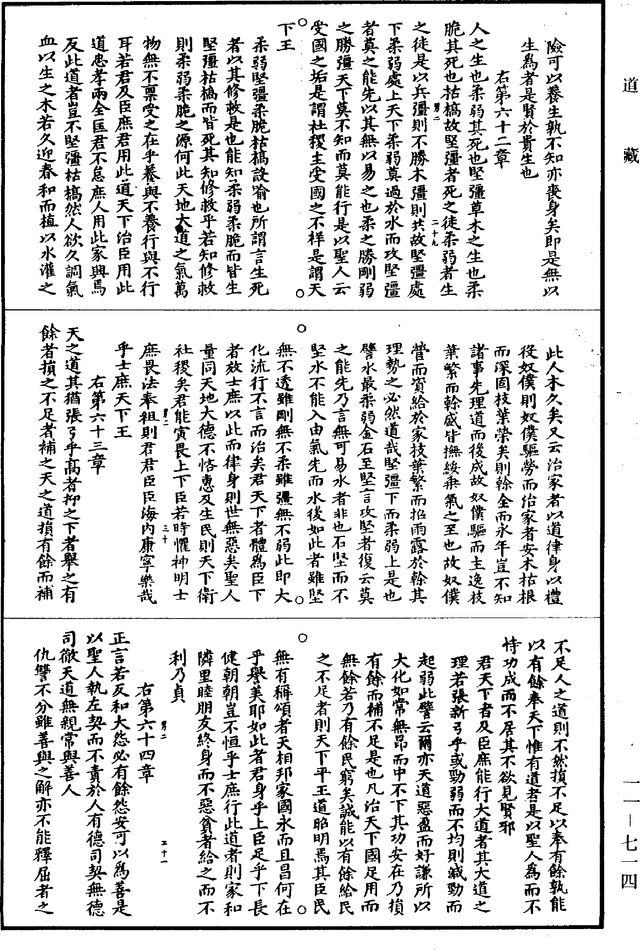 道藏
險可以養生孰不知亦喪身矣即是無以
生為者是賢於貴生也
右第六十二章
人之生也柔弱其死也堅彊草木之生也柔
脆其死也枯槁故堅彊者死之徒柔弱者生
之徒是以兵彊則不勝木彊則共故堅彊處
下柔弱處上天下柔弱莫過於水而攻堅彊
者莫之能先以其無以易之也柔之勝剛弱
之勝彊天下莫不知而莫能行是以聖人云
受國之垢是謂社稷主受國之不祥是謂天
下王
柔弱堅彊柔脆枯槁設喻也所謂言生死
者以其修救是也能知柔弱柔脆而皆生
堅彊枯槁而皆死其知修救乎若知修救
則柔弱柔脆之源何此天地大道之氣萬
物無不稟受之在乎養與不養行與不行
耳若君及臣庶君用此道天下治臣用此
道忠孝兩全匡君不怠庶人用此家興焉
反此道者豈不堅彊枯槁然人欲久調氣
血以生之木若久迎春和而植以水灌之
此人木久矣又云治家者以道律身以禮
役奴僕則奴僕驅勞而治家者安木枯根
而深固枝葉榮矣則榦全而永年豈不知
諸事先理道而後成故奴僕驅而主逸枝
葉繁而榦盛皆撫綏乘氣之至也故奴僕
營而資給於家枝葉繁而招雨露於榦其
理勢之必然道哉堅彊下而柔弱上是也
譬水最柔弱金石至堅言攻堅者復云莫
之能先乃言無可易水者非也石堅而不
堅水不能入由氣先而水後如此者雖堅
無不透雖剛無不柔雖彊無不弱此即大
化流行不言而治矣君天下者體為臣下
者效士庶以此而律身則世無惡矣聖人
量同天地大德不悋惠及生民則天下衛
社稷矣君能寅畏上下臣若時懼神明士
庶畏法奉祖則君君臣臣海內康寧樂哉
乎士庶天下王
右第六十三章
天之道其猶張弓乎高者抑之下者舉之有
餘者損之不足者補之天之道損有餘而補
不足人之道則不然損不足以奉有餘孰能
以有餘奉天下惟有道者是以聖人為而不
恃功成而不居其不欲見賢邪
君天下者及臣庶能行大道者其大道之
理若張新弓乎或勁弱而不均則減勁而
起弱此譬云爾亦天道惡盈而好謙所以
大化如常無昂而中不下其功安在乃損
有餘而補不足是也凡治天下國足用而
無餘若乃有餘民窮矣誠能以有餘給民
之不足者則天下平王道昭明焉其臣民
無有稱頌者天相邦家國永而且昌何在
乎譽美耶如此者君身乎上臣足乎下長
健朝朝豈不恒乎士庶行此道者則家和
隣里睦朋友終身而不惡貧者給之而不
利乃貞
右第六十四章
正言若反和大怨必有餘怨安可以為善是
以聖人執左契而不責於人有德司契無德
司徹天道無親常與善人
仇讐不分雖善與之解亦不能釋屈者之
一一—七一四